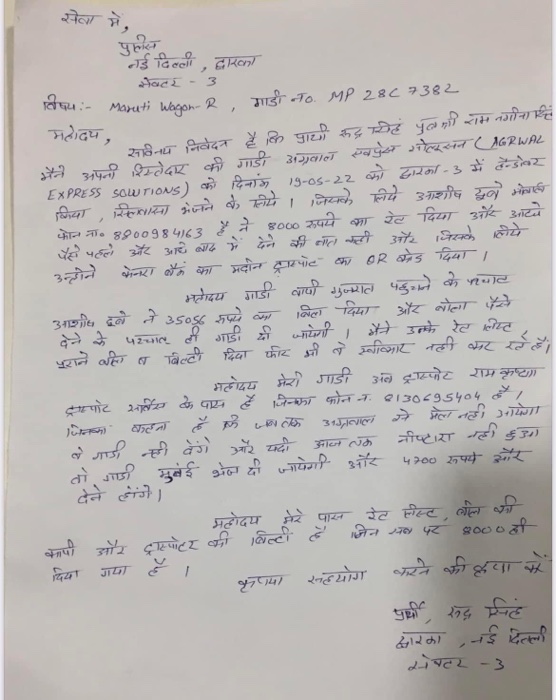 सेवा में,
पुलिस
नई दिल्ली, द्वारका
सेक्टर - 3
विषय:- Maruti Wagon-R, गाडी no. MP 28C 7382
महोदय,
सविनय निवेदन है कि प्रार्थी रूद्र सिंह पुत्र श्री राम नगीना सिंह
मैंने अपनी रिस्तेदार की गाडी अग्रवाल एक्सप्रेस सोल्यूसन (AGRWAL
EXPRESS SOLUTIONS) को दिनांक 19-05-22 को द्वारका-3 में हैन्डओवर
किया, सिलवासा भेजने के लिये । जिसके लिये आशीष दूबे मोबाइल
फोन no. 8800984163 है ने 8000 रूपये का रेट दिया और आधे
पैसे पहले और आधे बाद में देने की बात कही और जिसके लिये
उन्होने केनरा बैंक का ट्रान्सपोर्ट का QR कोड दिया ।
महोदय गाडी वापी गुजरात पहुचने के पश्चात
आशीष दूबे ने 35056 रूपये का बिल दिया और बोला पैसे
देने के पश्चात ही गाडी दी जायेगी । मैंने उनके रेट लिस्ट,
पुराने व बिल्टी दिया फीर भी वे स्वीकार नही कर रहे हैं।
महोदय मेरी गाडी अब ट्रान्सपोट राम कृष्णा
ट्रान्सपोट सर्विस के पास है जिनका फोन न. 8130695404 है ।
जिनका कहना है की जब तक अग्रवाल से मेल नही आयेगा
वे गाडी नही देगें और यदी आज तक नीप्टारा नही हुआ
तो गाडी मुबंई भेज दी जायेगी और 4700 रूपये और
देने होंगे।
महोदय मेरे पास रेट लीस्ट, बील की
कापी और ट्रान्सपोटर की बिल्टी है जिन सब पर 8000 ही
दिया गया है ।
कृपया सहयोग करने की कृपा करें
प्रार्थी, रूद्र सिंह
द्वारका, नई दिल्ली
सेक्टर - 3